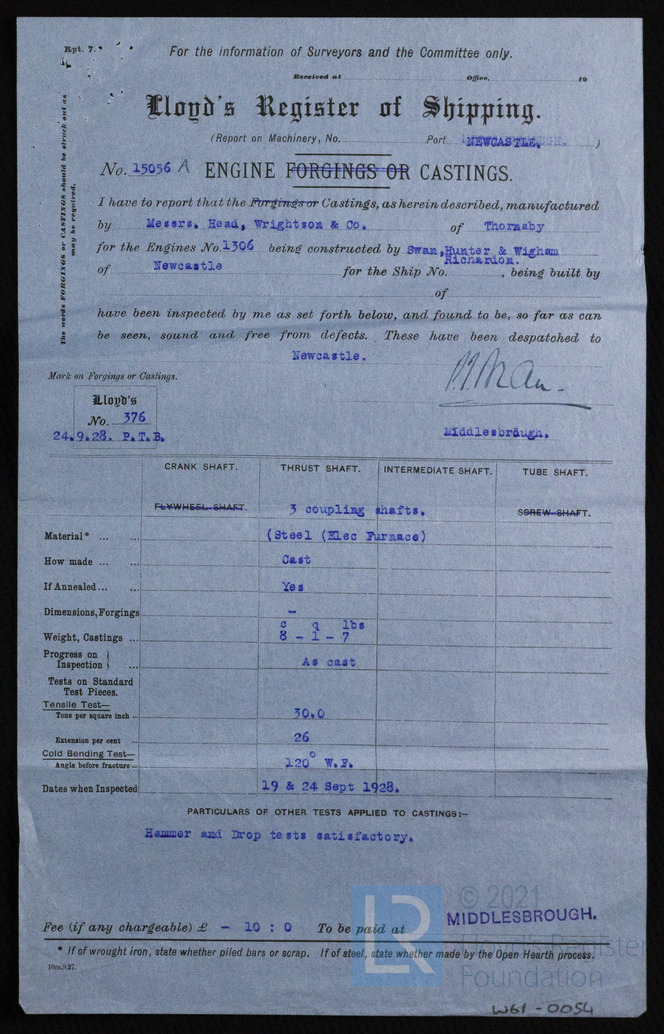 Rpt. 7.
For the information of Surveyors and the Committee only.
Received at Office, 19
Lloyd's Register of Shipping.
(Report on Machinery, No. Port NEWCASTLE. )
No. 15056 A ENGINE FORGINGS OR CASTINGS.
The words FORGINGS or CASTINGS should be struck out as
may be required.
I have to report that the Forgings or Castings, as herein described, manufactured
by Messrs. Head, Wrightson & Co. of Thornaby
for the Engines No. 1306 being constructed by Swan, Hunter & Wigham
Richardon.
of Newcastle for the Ship No. , being built by
of
have been inspected by me as set forth below, and found to be, so far as can
be seen, sound and free from defects. These have been despatched to
Newcastle.
Mark on Forgings or Castings.
Lloyd's
No. 376
24.9.28. P.T.B.
Middlesbraugh.
CRANK SHAFT. THRUST SHAFT. INTERMEDIATE SHAFT. TUBE SHAFT.
FLYWHEEL SHAFT. 3 coupling shafts. SCREW SHAFT.
Material* ... ... (Steel (Elec Furnace)
How made ... ... Cast
If Annealed ... ... Yes
Dimensions, Forgings -
c q lbs
Weight, Castings ... 8 - 1 - 7
Progress on
Inspection } ... As cast
Tests on Standard
Test Pieces.
Tensile Test—
Tons per square inch ... 30.0
Extension per cent ... 26
Cold Bending Test—
Angle before fracture ... 120° W.F.
Dates when Inspected 19 & 24 Sept 1928.
PARTICULARS OF OTHER TESTS APPLIED TO CASTINGS:—
Hammer and Drop tests satisfactory.
Fee (if any chargeable) £ - 10 : 0 To be paid at MIDDLESBROUGH.
* If of wrought iron, state whether piled bars or scrap. If of steel, state whether made by the Open Hearth process.
10m,9.27.
LR
© 2021
Lloyd's Register
Foundation
W61-0054